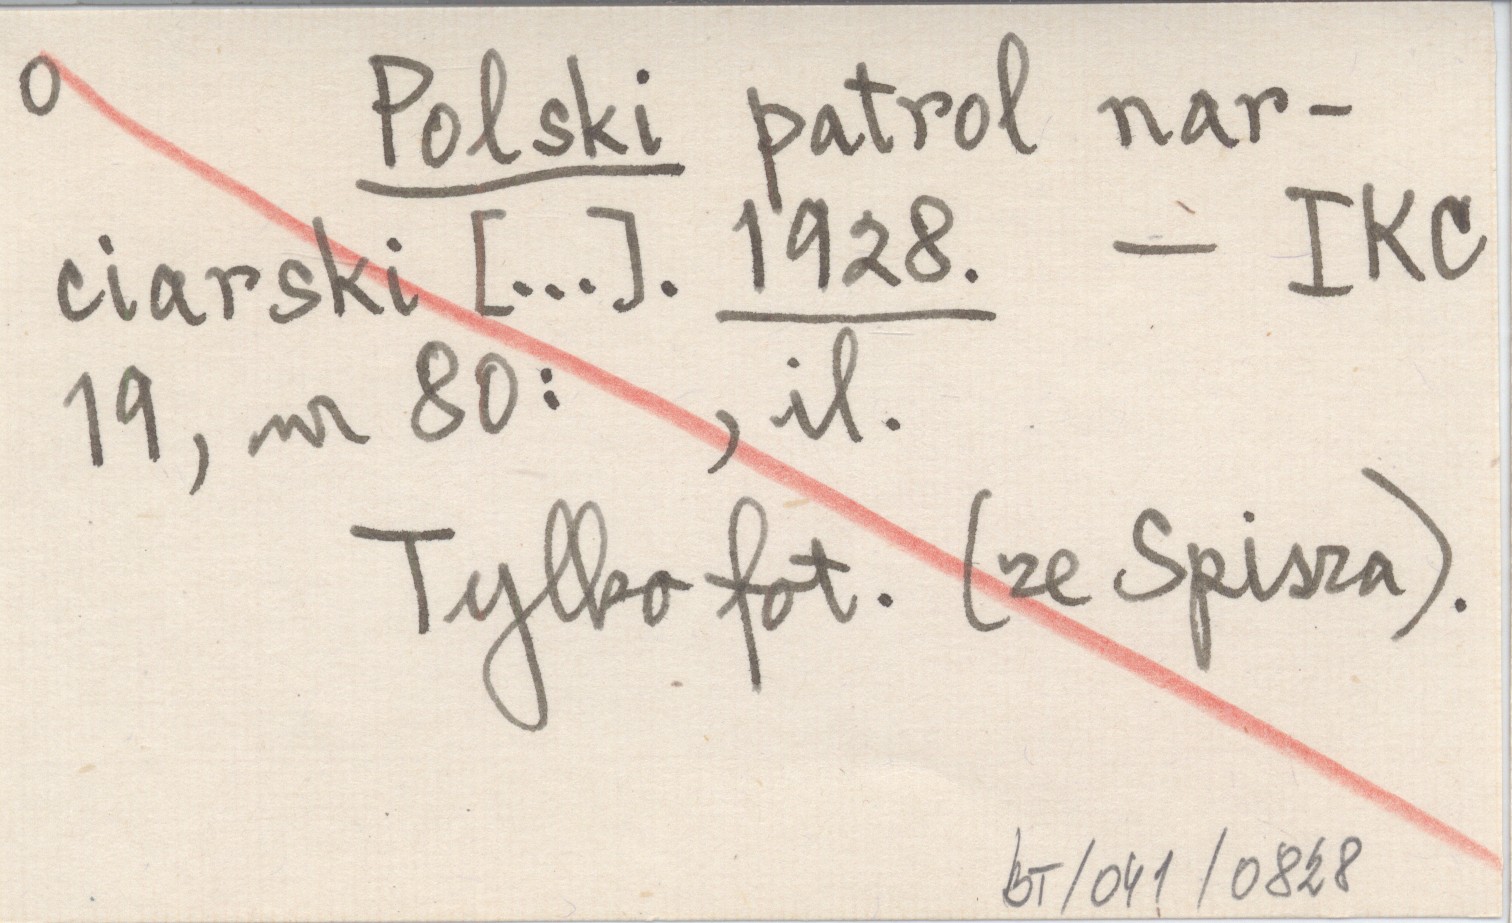 O Polski patrol nar-
ciarski [...]. 1928. — IKC
19, nr 80: , il.
Tylko fot. (ze Spisza).
bT/041/0828